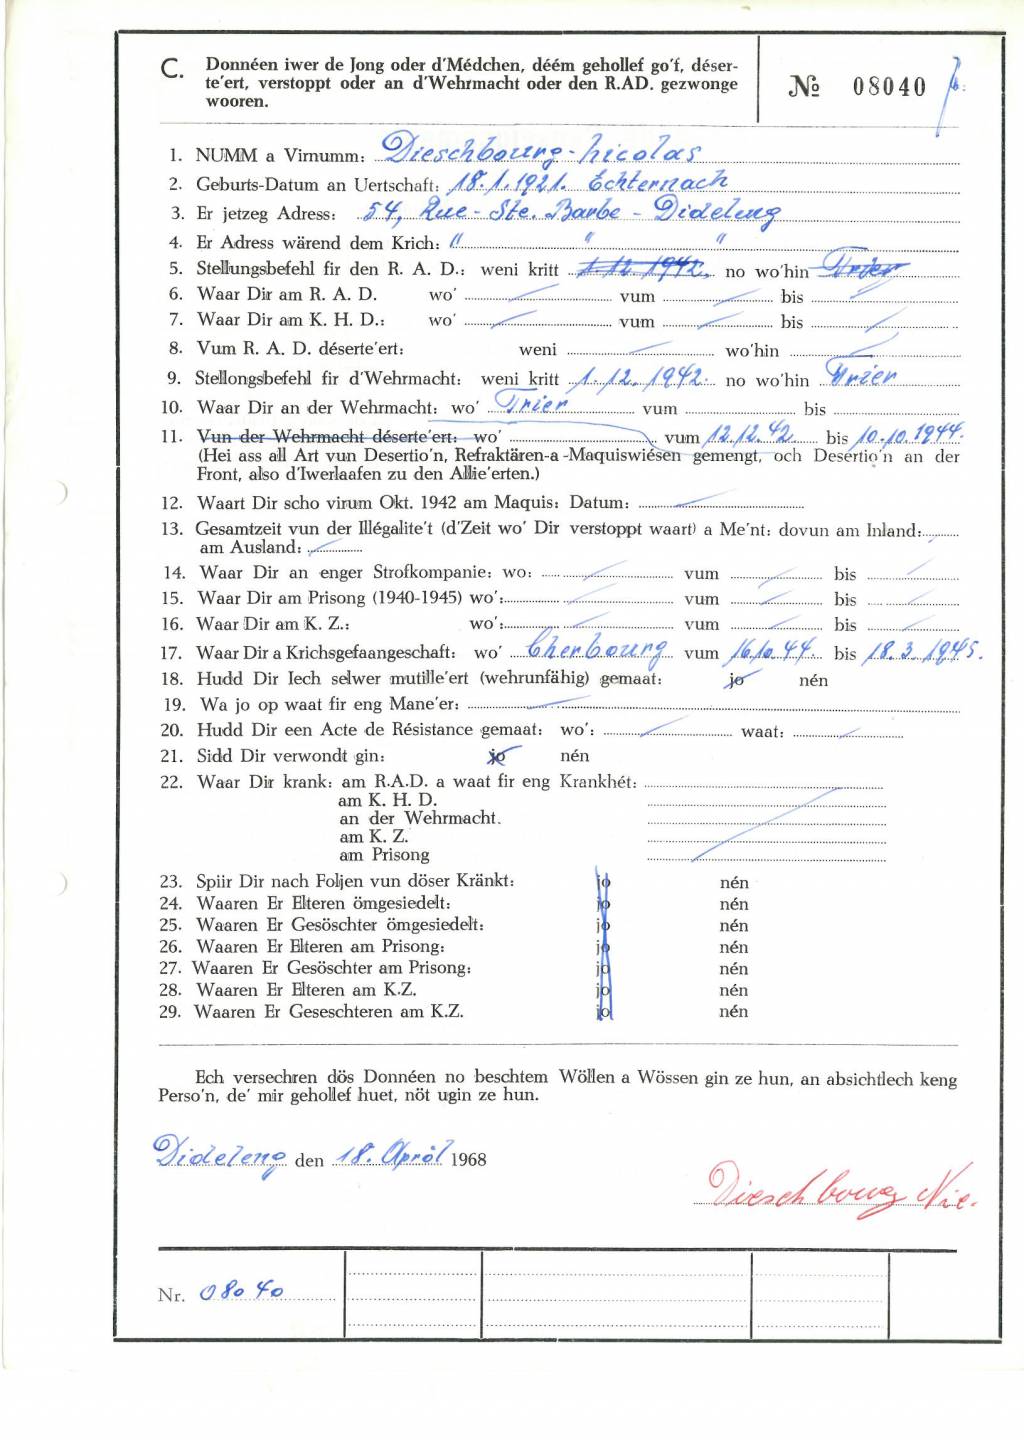 C. Donnéen iwer de Jong oder d'Médchen, déém gehollef go'f, déser-
te'ert, verstoppt oder an d'Wehrmacht oder den R.AD. gezwonge
wooren.
№ 08040
1. NUMM a Virnumm: Dieschbourg - Nicolas
2. Geburts-Datum an Uertschaft: 18.1.1921. Echternach
3. Er jetzeg Adress: 54, Rue - Ste. Barbe - Dideleng
4. Er Adress wärend dem Krich: " " "
5. Stellungsbefehl fir den R. A. D.: weni kritt 1.12.1942. no wo'hin Trier
6. Waar Dir am R. A. D. wo' vum bis
7. Waar Dir am K. H. D.: wo' vum bis
8. Vum R. A. D. déserte'ert: weni wo'hin
9. Stellongsbefehl fir d'Wehrmacht: weni kritt 1.12.1942. no wo'hin Trier
10. Waar Dir an der Wehrmacht: wo' Trier vum bis
11. Vun der Wehrmacht déserte'ert: wo' vum 12.12.42 bis 10.10.1944.
(Hei ass all Art vun Desertio'n, Refraktären-a-Maquiswiésen gemengt, och Desertio'n an der
Front, also d'Iwerlaafen zu den Allie'erten.)
12. Waart Dir scho virum Okt. 1942 am Maquis: Datum:
13. Gesamtzeit vun der Illégalite't (d'Zeit wo' Dir verstoppt waart) a Me'nt: dovun am Inland:
am Ausland:
14. Waar Dir an enger Strofkompanie: wo: vum bis
15. Waar Dir am Prisong (1940-1945) wo': vum bis
16. Waar Dir am K. Z.: wo': vum bis
17. Waar Dir a Krichsgefaangeschaft: wo' Cherbourg vum 16.10.44. bis 18.3.1945.
18. Hudd Dir Iech selwer mutille'ert (wehrunfähig) gemaat: jo nén
19. Wa jo op waat fir eng Mane'er:
20. Hudd Dir een Acte de Résistance gemaat: wo': waat:
21. Sidd Dir verwondt gin: jo nén
22. Waar Dir krank: am R.A.D. a waat fir eng Krankhét:
am K. H. D.
an der Wehrmacht.
am K. Z.
am Prisong
23. Spiir Dir nach Foljen vun döser Kränkt: jo nén
24. Waaren Er Elteren ömgesiedelt: jo nén
25. Waaren Er Gesöschter ömgesiedelt: jo nén
26. Waaren Er Elteren am Prisong: jo nén
27. Waaren Er Gesöschter am Prisong: jo nén
28. Waaren Er Elteren am K.Z. jo nén
29. Waaren Er Geseschteren am K.Z. jo nén
Ech versechren dös Donnéen no beschtem Wöllen a Wössen gin ze hun, an absichtlech keng
Perso'n, de' mir gehollef huet, nöt ugin ze hun.
Dideleng den 18. Apröl 1968
Dieschbourg Nic.
Nr. 08040